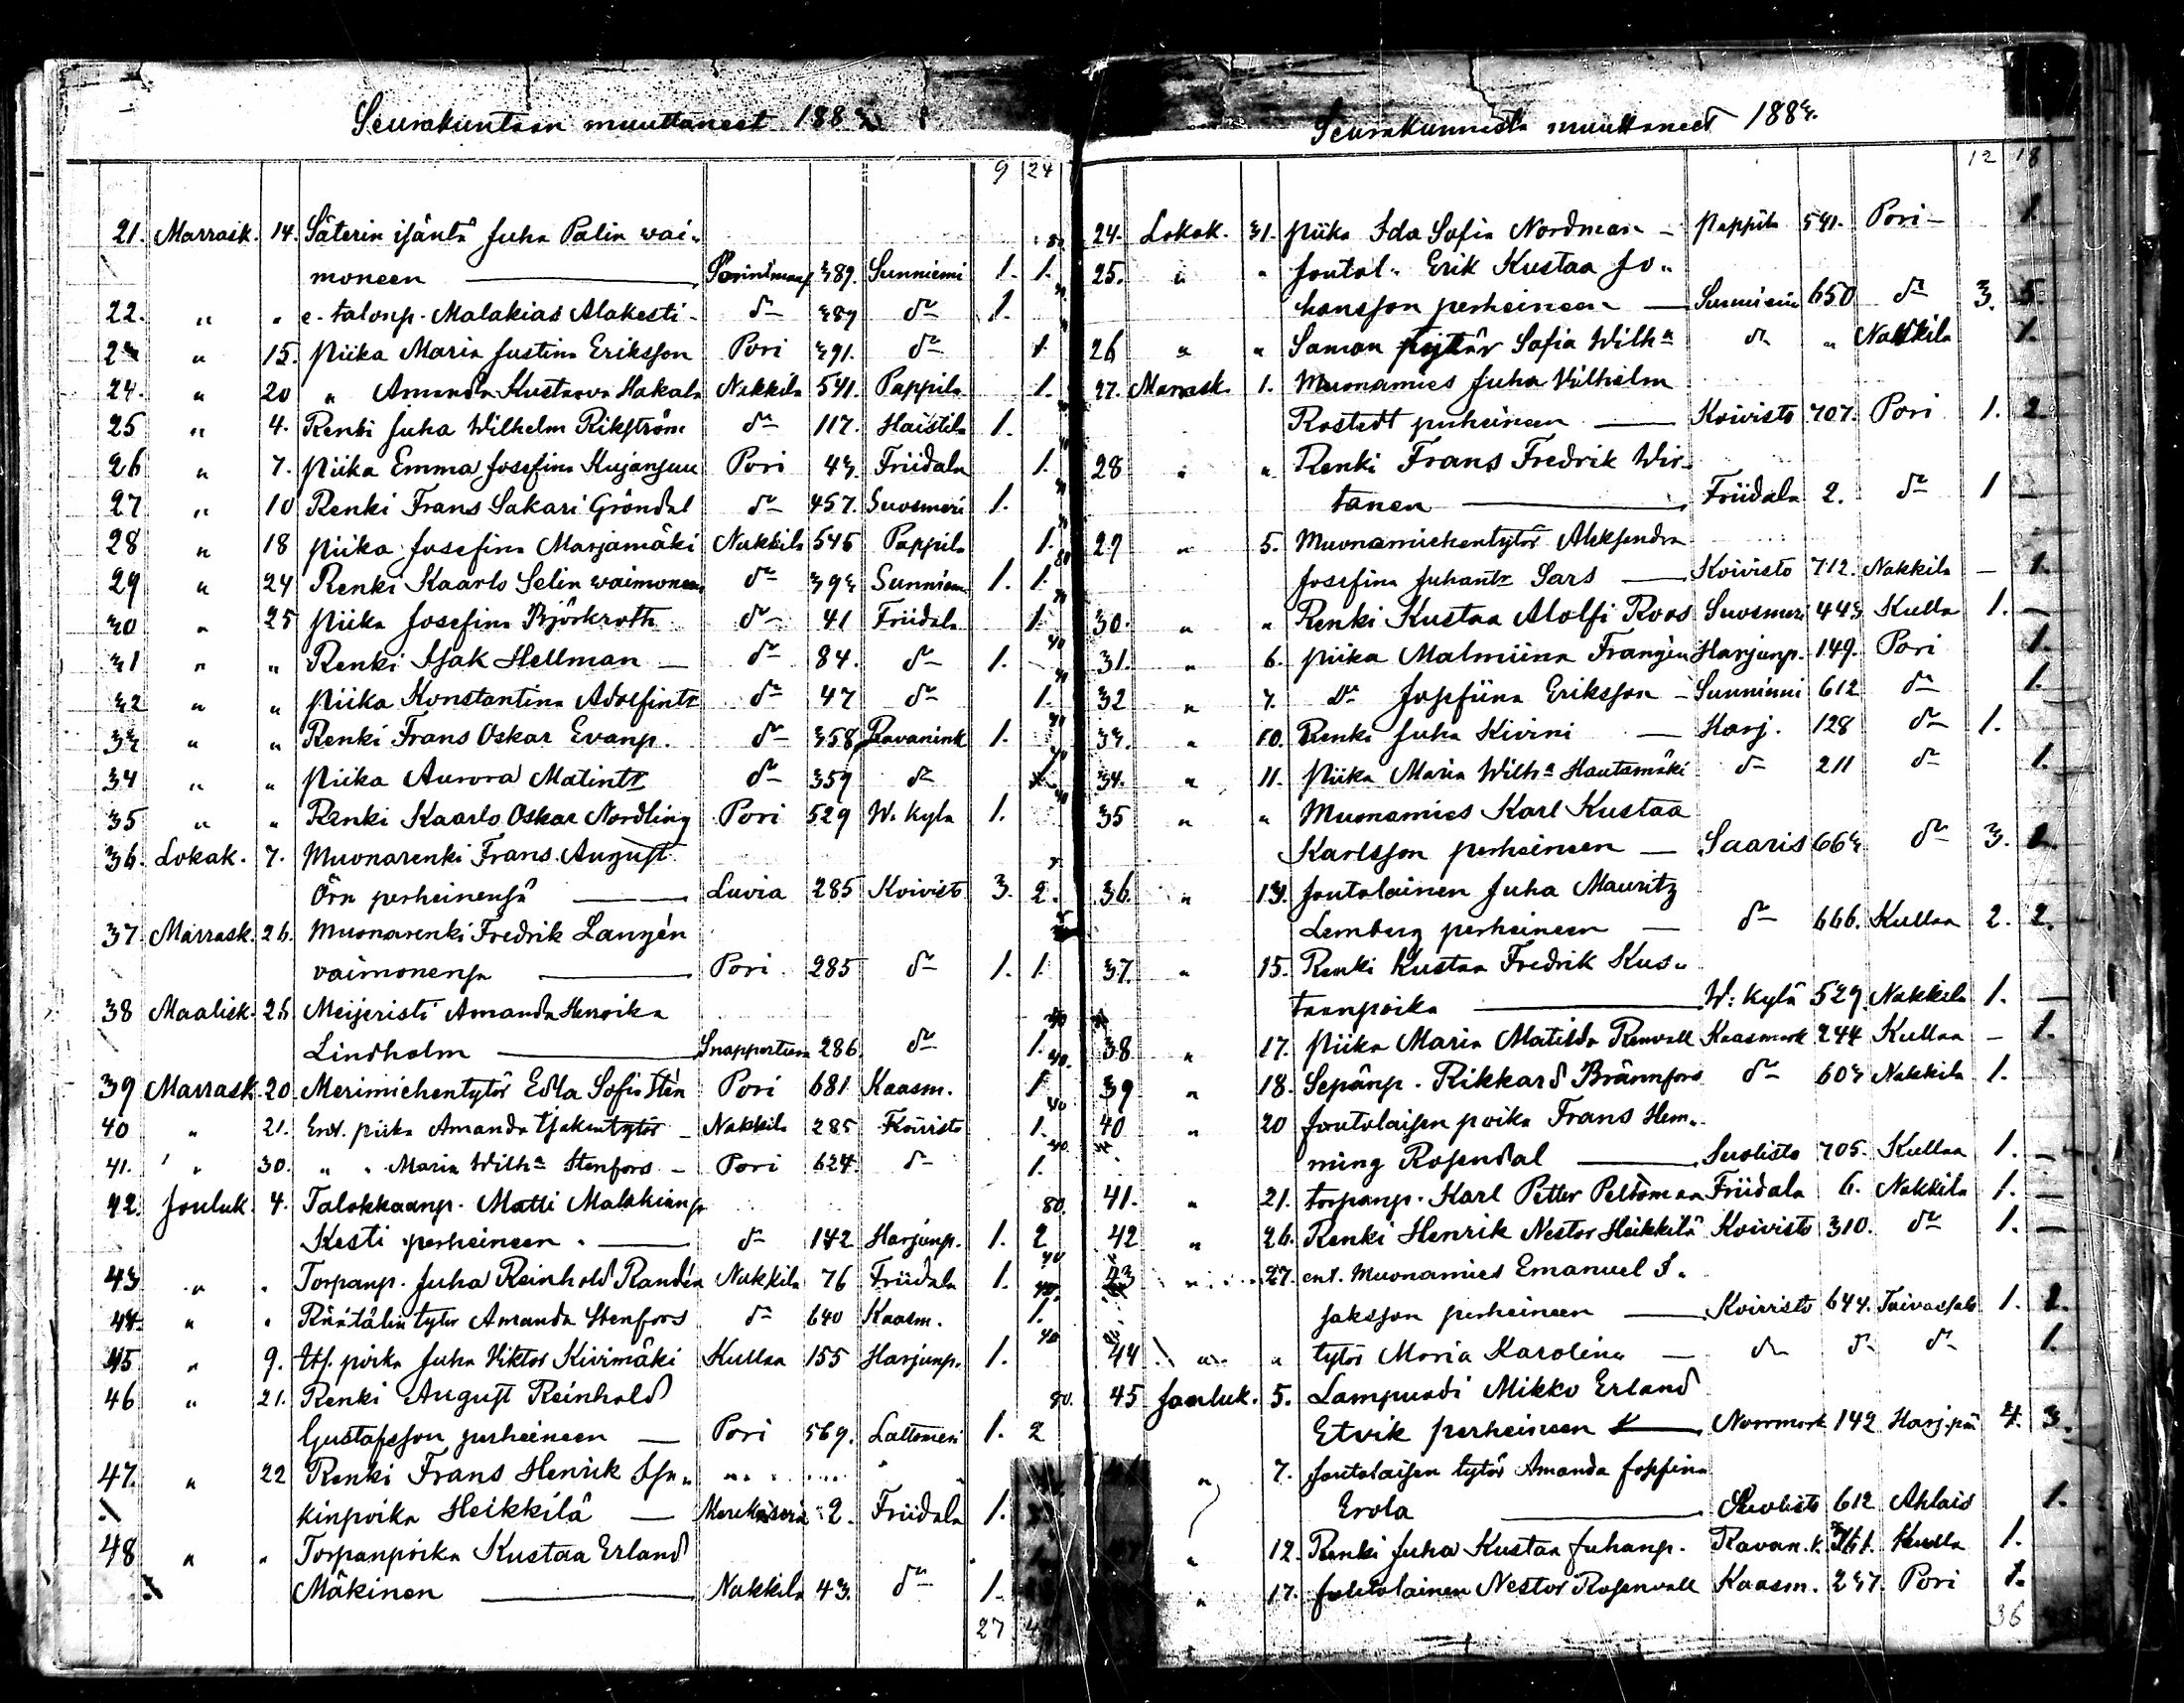 Seurakuntaan muuttaneet 1883
9 24
21. Marrask. 14. Säterin isäntä Juha Palin wai-
moneen 389. Sunniemi 1. 1.
22. " " e. talonp. Malakias Alakesti - do 389 do 1.
23 " 15. Piika Maria Justina Eriksson Pori 391. do 1
24. " 20 " Amanda Kustaava Hakala Nakkila 541. Pappila 1.
25 " 4. Renki Juha Wilhelm Rikström do 117. Haistila 1.
26 " 7. Piika Emma Josefina Kujanpuu Pori 43. Friidala 1.
27 " 10 Renki Frans Sakari Gröndal do 457. Suosmeri 1.
28 " 18 Piika Josefina Marjamäki Nakkila 545 Pappila 1.
29 " 24 Renki Kaarlo Selin waimoneen do 393 Sunniem. 1. 1.
30 " 25 Piika Josefina Björkroth do 41 Friidala 1.
31 " " Renki Isak Hellman do 84. do 1.
32 " " Piika Konstantina Adolfintr do 47 do 1.
33 " " Renki Frans Oskar Evanp. do 358 Ravanink 1.
34 " " Piika Aurora Matintr do 359 do 1.
35 " " Renki Kaarlo Oskar Nordling Pori 529 W. kyla 1.
36. Lokak. 7. Muonarenki Frans August
Örn perheinensä Luvia 285 Koivisto 3. 2.
37 Marrask. 26. Muonarenki Fredrik Langén
vaimonensa Pori 285 do 1. 1.
38 Maalisk. 25 Meijeristi Amanda Henrika
Lindholm 286. do 1.
39 Marrask. 20. Merimiehentytör Edla Sofia Sten Pori 681 Kaasm. 1
40 " 21. Ent. piika Amanda Isakintytör Nakkila 285 Koivisto 1.
41. " 30. " " Maria Wilhа Stenfors - Pori 624. do 1.
42. Jouluk. 4. Talokkaanp. Matti Malakianp
Kesti perheineen do 142 Harjunp. 1. 2
43 " " Torpanp. Juha Reinhold Randén Nakkila 76 Friidala 1.
44. " " Räätälin tytör Amanda Stenfors do 640 Kaasm. 1.
45 " 9. poika Juha Viktor Kivimäki Kullaa 155 Harjunp. 1.
46 " 21. Renki August Reinhold
Gustafsson perheineen Pori 569. Lattomeri 1. 2
47. " 22 Renki Frans Henrik Isa-
kinpoika Heikkilä Merikarvia 2. Friidala 1.
48 " " Torpanpoika Kustaa Erland
Mäkinen Nakkila 43. do 1.
27
Seurakunnista muuttaneet 1883.
12 18
24. Lokak. 31. Piika Ida Sofia Nordman - Pappila 541. Pori - 1.
25. " " Joutol. Erik Kustaa Jo-
hansson perheineen Sunniemi 650 do 3. 5.
26 " " Saman tytär Sofia Wilhа do " Nakkila 1.
27. Marrask. 1. Muonamies Juha Vilhelm
Rostedt perheineen Koivisto 707. Pori 1. 2.
28 " " Renki Frans Fredrik Wir-
tanen Friidala 2. do 1 -
29 " 5. Muonamiehentytör Aleksandra
Josefina Juhantr Sars Koivisto 712. Nakkila - 1.
30. " " Renki Kustaa Adolfi Roos Suosmeri 443 Kulla 1. -
31. " 6. Piika Malmiina Franzén Harjunp. 149. Pori 1.
32 " 7. do Josefiina Eriksson - Sunniemi 612 do 1.
33. " 10. Renki Juha Kivini Harj. 128 do 1.
34. " 11. Piika Maria Wilhа Hautamäki do 211 do 1.
35 " " Muonamies Karl Kustaa
Karlsson perheineen Saaris 663 do 3. 1.
36. " 13. Joutolainen Juha Mauritz
Lemberg perheineen do 666. Kullaa 2. 2.
37. " 15. Renki Kustaa Fredrik Kus-
taanpoika W: kylä 529. Nakkila 1. -
38. " 17. Piika Maria Matilda Renvall Kaasmark 244 Kullaa - 1.
39 " 18. Sepänp. Rikkard Brännfors do 603 Nakkila 1.
40 " 20 Joutolaisen poika Frans Hem-
ming Rosendal Suolisto 705. Kullaa 1. -
41. " 21. torpanp. Karl Petter Peltomaa Friidala 6. Nakkila 1. -
42 " 26. Renki Henrik Nestor Heikkilä Koivisto 310. do 1. -
43 " 27. ent. Muonamies Emanuel I-
saksson perheineen Koivisto 644. 1. 1.
44 " " tytör Maria Karolina do do do 1.
45 Jouluk. 5. Lampuodi Mikko Erland
Etvik perheineen Norrmark 142 Harj.pää 4. 3.
" 7. Joutolaisen tytör Amanda Josefina
Erola Suolisto 612 Ahlais 1.
" 12. Renki Juha Kustaa Juhanp. Ravan. k. 361. Kulla 1.
" 17. Joutolainen Nestor Rosenvall Kaasm. 237. Pori 1.
36